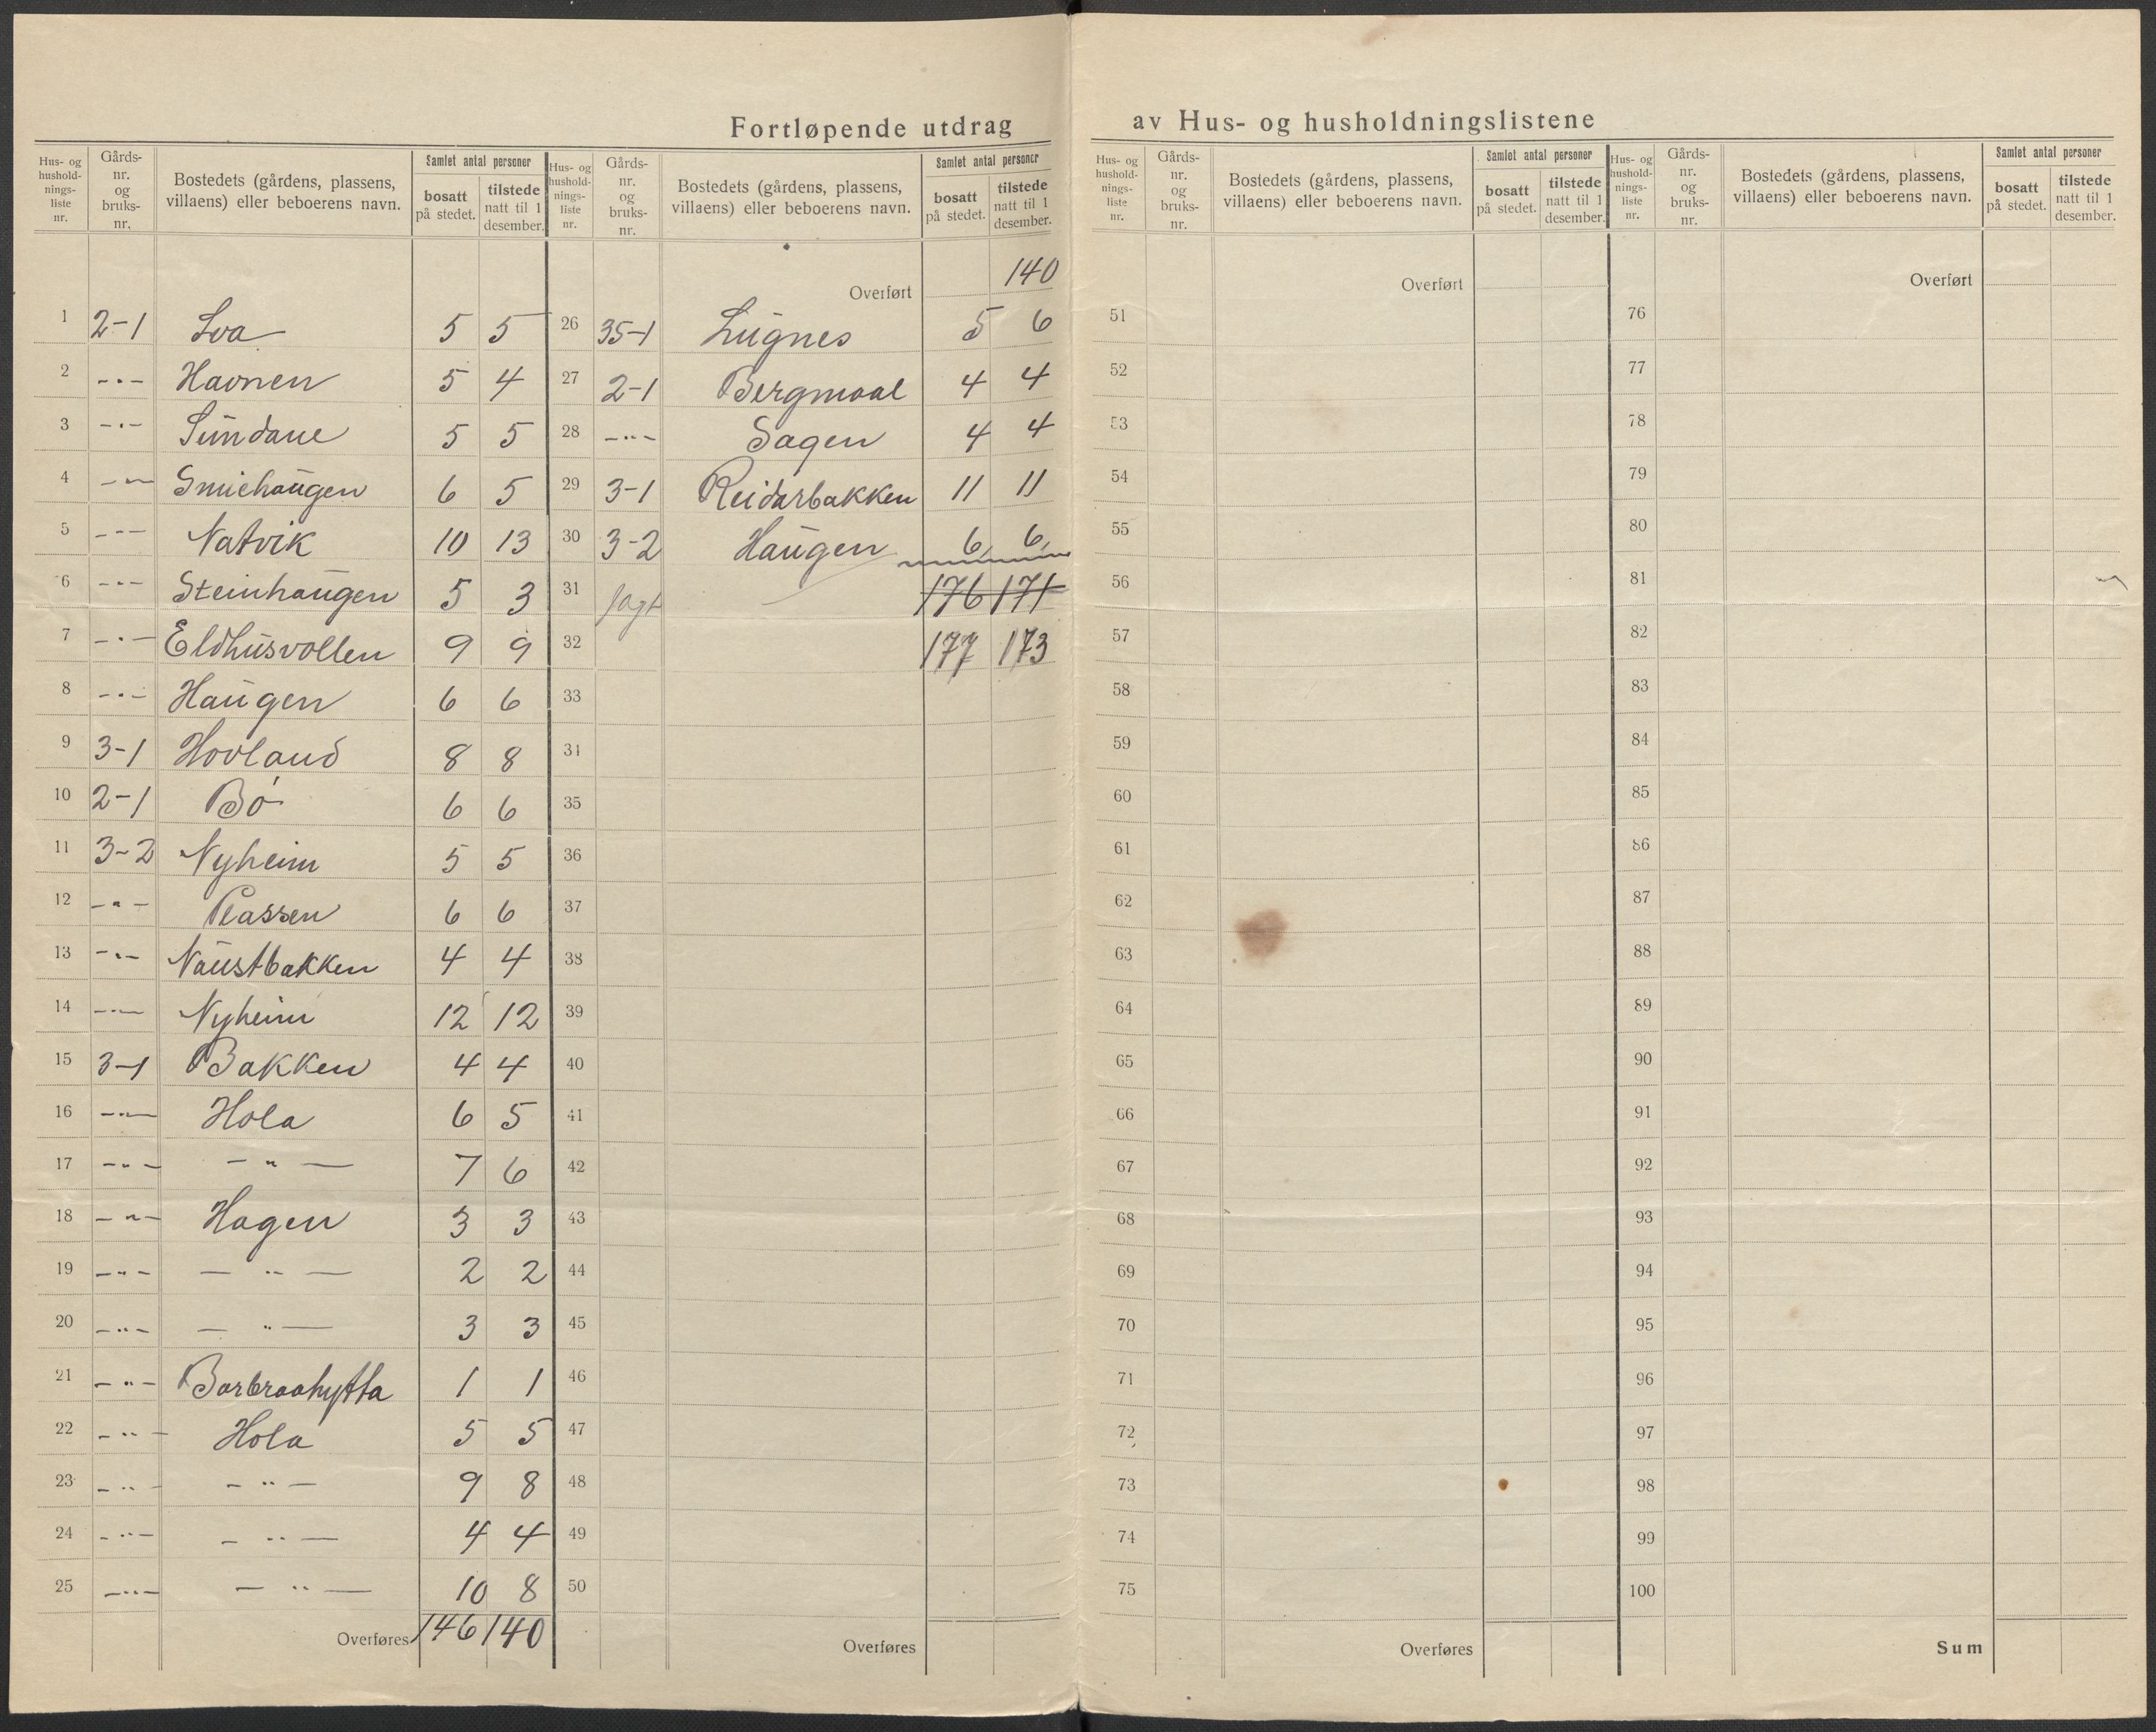 Fortløpende utdrag av Hus- og husholdningslistene
Hus- og hushold-nings-liste nr. Gårds-nr. og bruks-nr. Bostedets (gårdens, plassens, villaens) eller beboerens navn. Samlet antal personer bosatt på stedet. tilstede natt til 1 desember.
1 2-1 Sva 5 5
2 -"- Havnen 5 4
3 -"- Sundane 5 5
4 -"- Smiehaugen 6 5
5 -"- Natvik 10 13
6 -"- Steinhaugen 5 3
7 -"- Eldhusvollen 9 9
8 -"- Haugen 6 6
9 3-1 Hovland 8 8
10 2-1 Bö 6 6
11 3-2 Nyheim 5 5
12 -"- Plassen 6 6
13 -"- Naustbakken 4 4
14 -"- Nyheim 12 12
15 3-1 Bakken 4 4
16 -"- Hola 6 5
17 -"- -"- 7 6
18 -"- Hagen 3 3
19 -"- -"- 2 2
20 -"- -"- 3 3
21 -"- Barbraahytta 1 1
22 -"- Hola 5 5
23 -"- -"- 9 8
24 -"- -"- 4 4
25 -"- -"- 10 8
Overføres 146 140
Hus- og hushold-nings-liste nr. Gårds-nr. og bruks-nr. Bostedets (gårdens, plassens, villaens) eller beboerens navn. Samlet antal personer bosatt på stedet. tilstede natt til 1 desember.
Overført 140
26 35-1 Lugnes 5 6
27 2-1 Bergmaal 4 4
28 -"- Sagen 4 4
29 3-1 Reidarbakken 11 11
30 3-2 Haugen 6 6
31 176 171
32 177 173
33
34
35
36
37
38
39
40
41
42
43
44
45
46
47
48
49
50
Overføres
Hus- og hushold-nings-liste nr. Gårds-nr. og bruks-nr. Bostedets (gårdens, plassens, villaens) eller beboerens navn. Samlet antal personer bosatt på stedet. tilstede natt til 1 desember.
Overført
51
52
53
54
55
56
57
58
59
60
61
62
63
64
65
66
67
68
69
70
71
72
73
74
75
Overføres
Hus- og hushold-nings-liste nr. Gårds-nr. og bruks-nr. Bostedets (gårdens, plassens, villaens) eller beboerens navn. Samlet antal personer bosatt på stedet. tilstede natt til 1 desember.
Overført
76
77
78
79
80
81
82
83
84
85
86
87
88
89
90
91
92
93
94
95
96
97
98
99
100
Sum